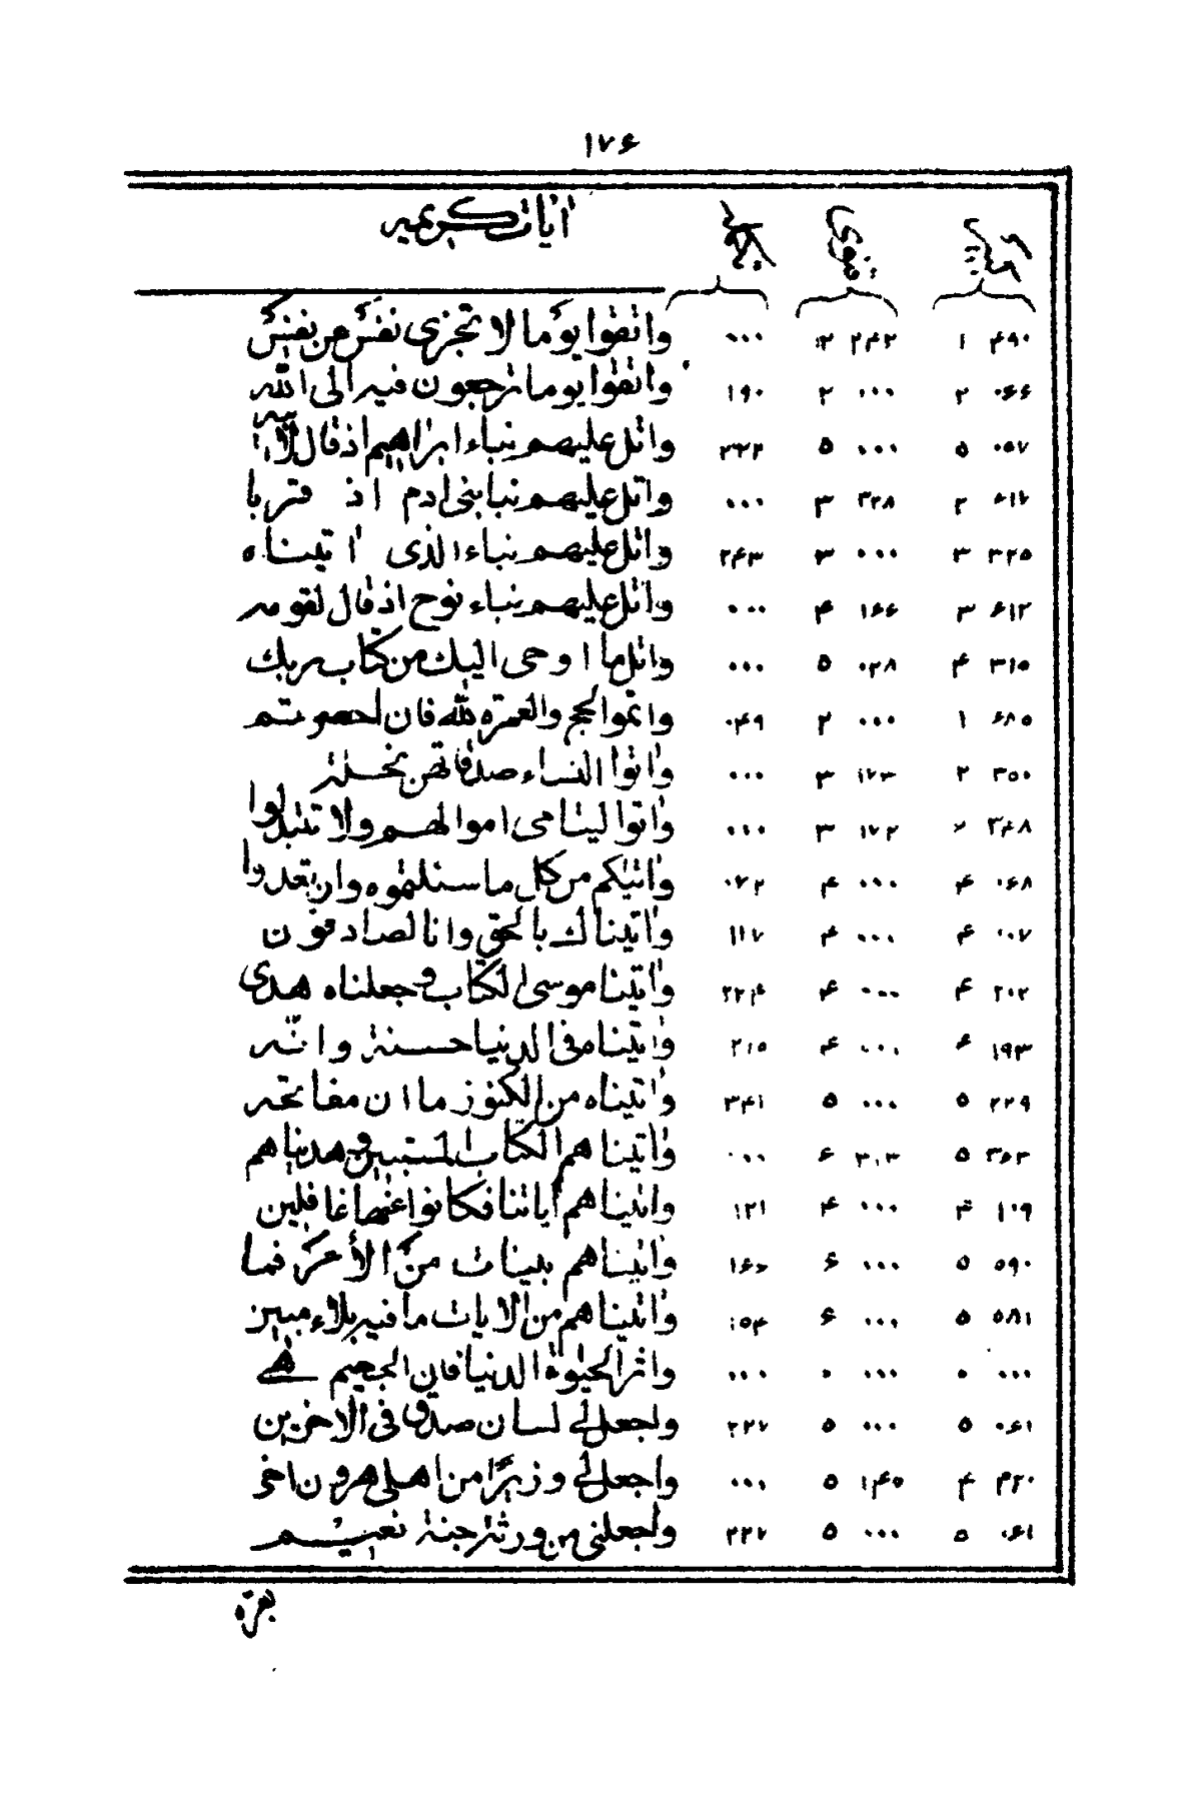 ١٧۶
ايات كريميه
۴٩٠ ١ ٢۴٢ ٢ ٠٠٠ واتقوا يوما لا تجزى نفس عن نفس
٠۶۶ ٢ ٠٠٠ ٢ ١٩٠ واتقوا يوما ترجعون فيه الى الله
٠۵٧ ۵ ٠٠٠ ۵ ٢٣٢ واتل عليهم نباء ابراهيم اذ قال لابيه
۶١٧ ٢ ٣٢٨ ٣ ٠٠٠ واتل عليهم نبا ابنى ادم اذ قربا
٣٢۵ ٣ ٠٠٠ ٣ ٢۴٣ واتل عليهم نباء الذى اتيناه
۶١٢ ٣ ١۶۶ ۴ ٠٠٠ واتل عليهم نباء نوح اذ قال لقومه
٣١۵ ۴ ٠٢٨ ۵ ٠٠٠ واتل ما اوحى اليك من كتاب ربك
۶٨۵ ١ ٠٠٠ ٢ ٠۴٩ واتموا الحج والعمرة لله فان احصرتم
٣۵٠ ٢ ١٧٣ ٣ ٠٠٠ واتوا النساء صدقاتهن نحلة
٣۴٨ ٢ ١٧٢ ٣ ٠٠٠ واتوا ليتامى اموالهم ولا تتبدلوا
٠۶٨ ۴ ٠٠٠ ۴ ٠٧٢ واتيكم من كل ما سئلتموه وان تعدوا
٠٠٧ ۴ ٠٠٠ ۴ ١١٧ واتيناك بالحق وانا لصادقون
٢٠٢ ۴ ٠٠٠ ۴ ٢٢۴ واتينا موسى الكتاب وجعلناه هدى
١٩٣ ۴ ٠٠٠ ۴ ٢١۵ واتيناه فى الدنيا حسنة وانه
٢٢٩ ۵ ٠٠٠ ۵ ٣۴١ واتيناه من الكنوز ما ان مفاتحه
٣۶٣ ۵ ٣٠٣ ۶ ٠٠٠ واتيناهم الكتاب المستبين وهديناهم
١٠٩ ۴ ٠٠٠ ۴ ١٢١ واتيناهم اياتنا فكانوا عنها غافلين
۵٩٠ ۵ ٠٠٠ ۶ ١۶٠ واتيناهم بينات من الأمر فما
۵٨١ ۵ ٠٠٠ ۶ ١۵۴ واتيناهم من الايات ما فيه بلاء مبين
٠٠٠ ٠ ٠٠٠ ٠ ٠٠٠ واثر الحيوة الدنيا فان الجحيم هى
٠۶١ ۵ ٠٠٠ ۵ ٢٢٧ واجعل لى لسان صدق فى الاخرين
۴٢٠ ۴ ١۴۵ ۵ ٠٠٠ واجعل لى وزيرا من اهلى هرون اخى
٠۶١ ۵ ٠٠٠ ۵ ٢٢٧ واجعلنى من ورثة جنة نعيم
بقره